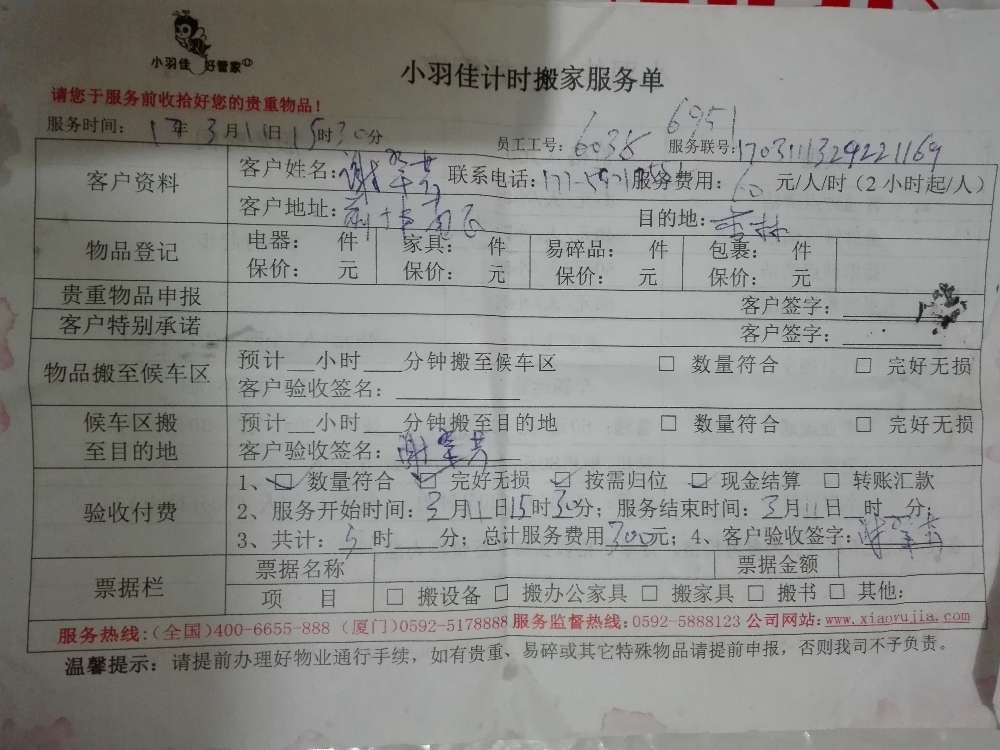 小羽佳 好管家
小羽佳计时搬家服务单
请您于服务前收拾好您的贵重物品！
6951
服务时间： 17年 3月11日15时30分 员工工号：6035 服务联号：17031113294221169
客户资料 客户姓名：谢 联系电话： 服务费用：60 元/人/时（2小时起/人）
客户地址： 目的地：杏林
物品登记 电器： 件 家具： 件 易碎品： 件 包裹： 件
保价： 元 保价： 元 保价： 元 保价： 元
贵重物品申报 客户签字：
客户特别承诺 客户签字：
物品搬至候车区 预计___小时____分钟搬至候车区 □ 数量符合 □ 完好无损
客户验收签名：
候车区搬至目的地 预计___小时____分钟搬至目的地 □ 数量符合 □ 完好无损
客户验收签名：谢
验收付费 1、☑ 数量符合 ☑ 完好无损 ☑ 按需归位 ☑ 现金结算 □ 转账汇款
2、服务开始时间：3月11日15时30分；服务结束时间：3月11日__时__分；
3、共计：5时____分；总计服务费用300元；4、客户验收签字：谢
票据栏 票据名称 票据金额
项 目 □ 搬设备 □ 搬办公家具 □ 搬家具 □ 搬书 □ 其他：
服务热线：（全国）400-6655-888（厦门）0592-5178888 服务监督热线：0592-5888123 公司网站：www.xiaoyujia.com
温馨提示：请提前办理好物业通行手续，如有贵重、易碎或其它特殊物品请提前申报，否则我司不予负责。